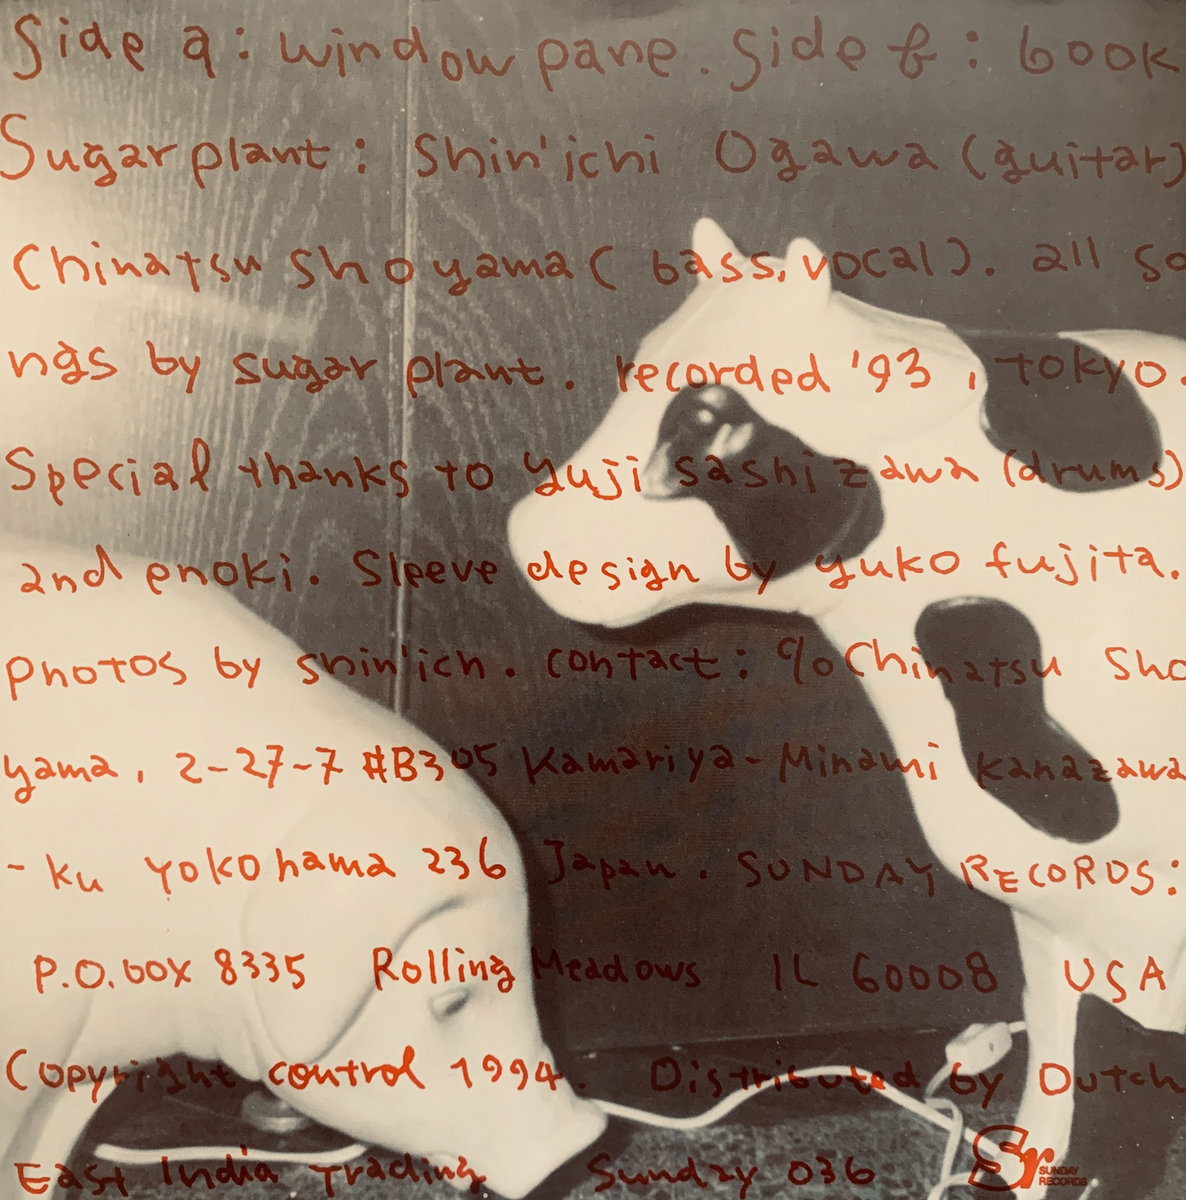 Side a : window pane. Side b : book
Sugar plant : Shin'ichi Ogawa (guitar)
Chinatsu Shoyama ( bass, vocal ). all so
ngs by sugar plant. recorded '93 , tokyo.
Special thanks to yuji sashizawa (drums)
and enoki. Sleeve design by yuko fujita.
photos by shin'ich. contact : c/o Chinatsu Sho
yama, 2-27-7 #B305 Kamariya-Minami Kanazawa
- ku Yokohama 236 Japan. SUNDAY RECORDS:
P.O.box 8335 Rolling Meadows IL 60008 USA
Copyright control 1994. Distributed by Dutch
East India Trading Sunday 036
Sr
SUNDAY
RECORDS